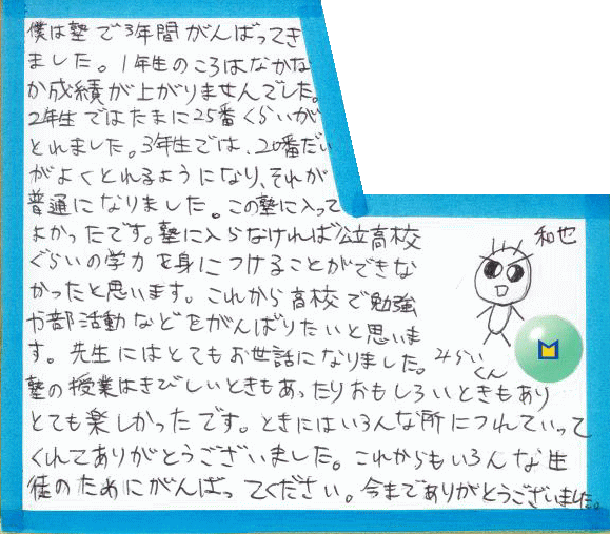 僕は塾で3年間がんばってき
ました。1年生のころはなかな
か成績が上がりませんでした。
2年生ではたまに25番くらいが
とれました。3年生では、20番だい
がよくとれるようになり、それが
普通になりました。この塾に入って
よかったです。塾に入らなければ公立高校
ぐらいの学力を身につけることができな
かったと思います。これから高校で勉強
や部活動などをがんばりたいと思いま
す。先生にはとてもお世話になりました。
塾の授業はきびしいときもあったりおもしろいときもあり
とても楽しかったです。ときにはいろんな所につれていって
くれてありがとうございました。これからもいろんな生
徒のためにがんばってください。今までありがとうございました。
和也
みらい
くん
M